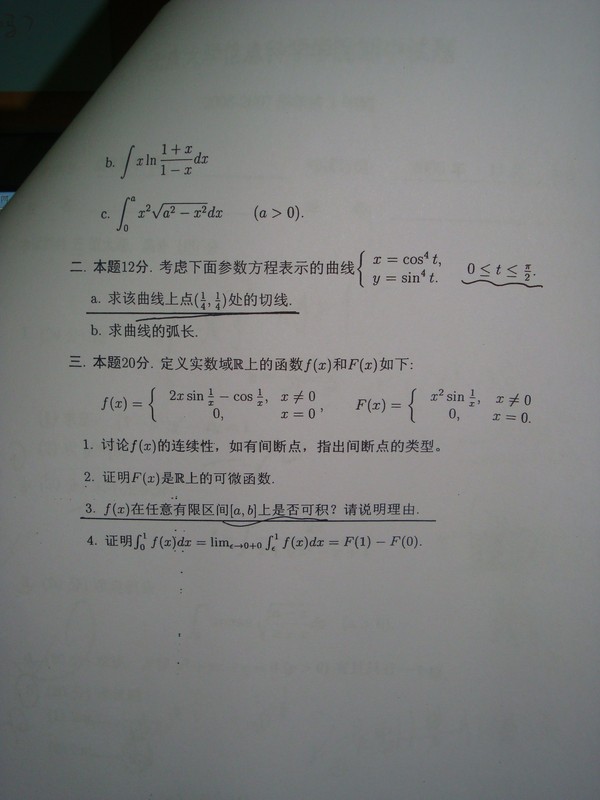 b. ∫ x ln (1 + x)/(1 − x) dx
c. ∫₀ᵃ x²√(a² − x²) dx (a > 0).
二. 本题12分. 考虑下面参数方程表示的曲线 { x = cos⁴ t, y = sin⁴ t. 0 ≤ t ≤ π/2.
a. 求该曲线上点(1/4, 1/4)处的切线.
b. 求曲线的弧长.
三. 本题20分. 定义实数域ℝ上的函数f(x)和F(x)如下:
f(x) = { 2x sin 1/x − cos 1/x, x ≠ 0; 0, x = 0, F(x) = { x² sin 1/x, x ≠ 0; 0, x = 0.
1. 讨论f(x)的连续性，如有间断点，指出间断点的类型。
2. 证明F(x)是ℝ上的可微函数.
3. f(x)在任意有限区间[a, b]上是否可积？请说明理由.
4. 证明∫₀¹ f(x)dx = lim_{ε→0+0} ∫_ε¹ f(x)dx = F(1) − F(0).